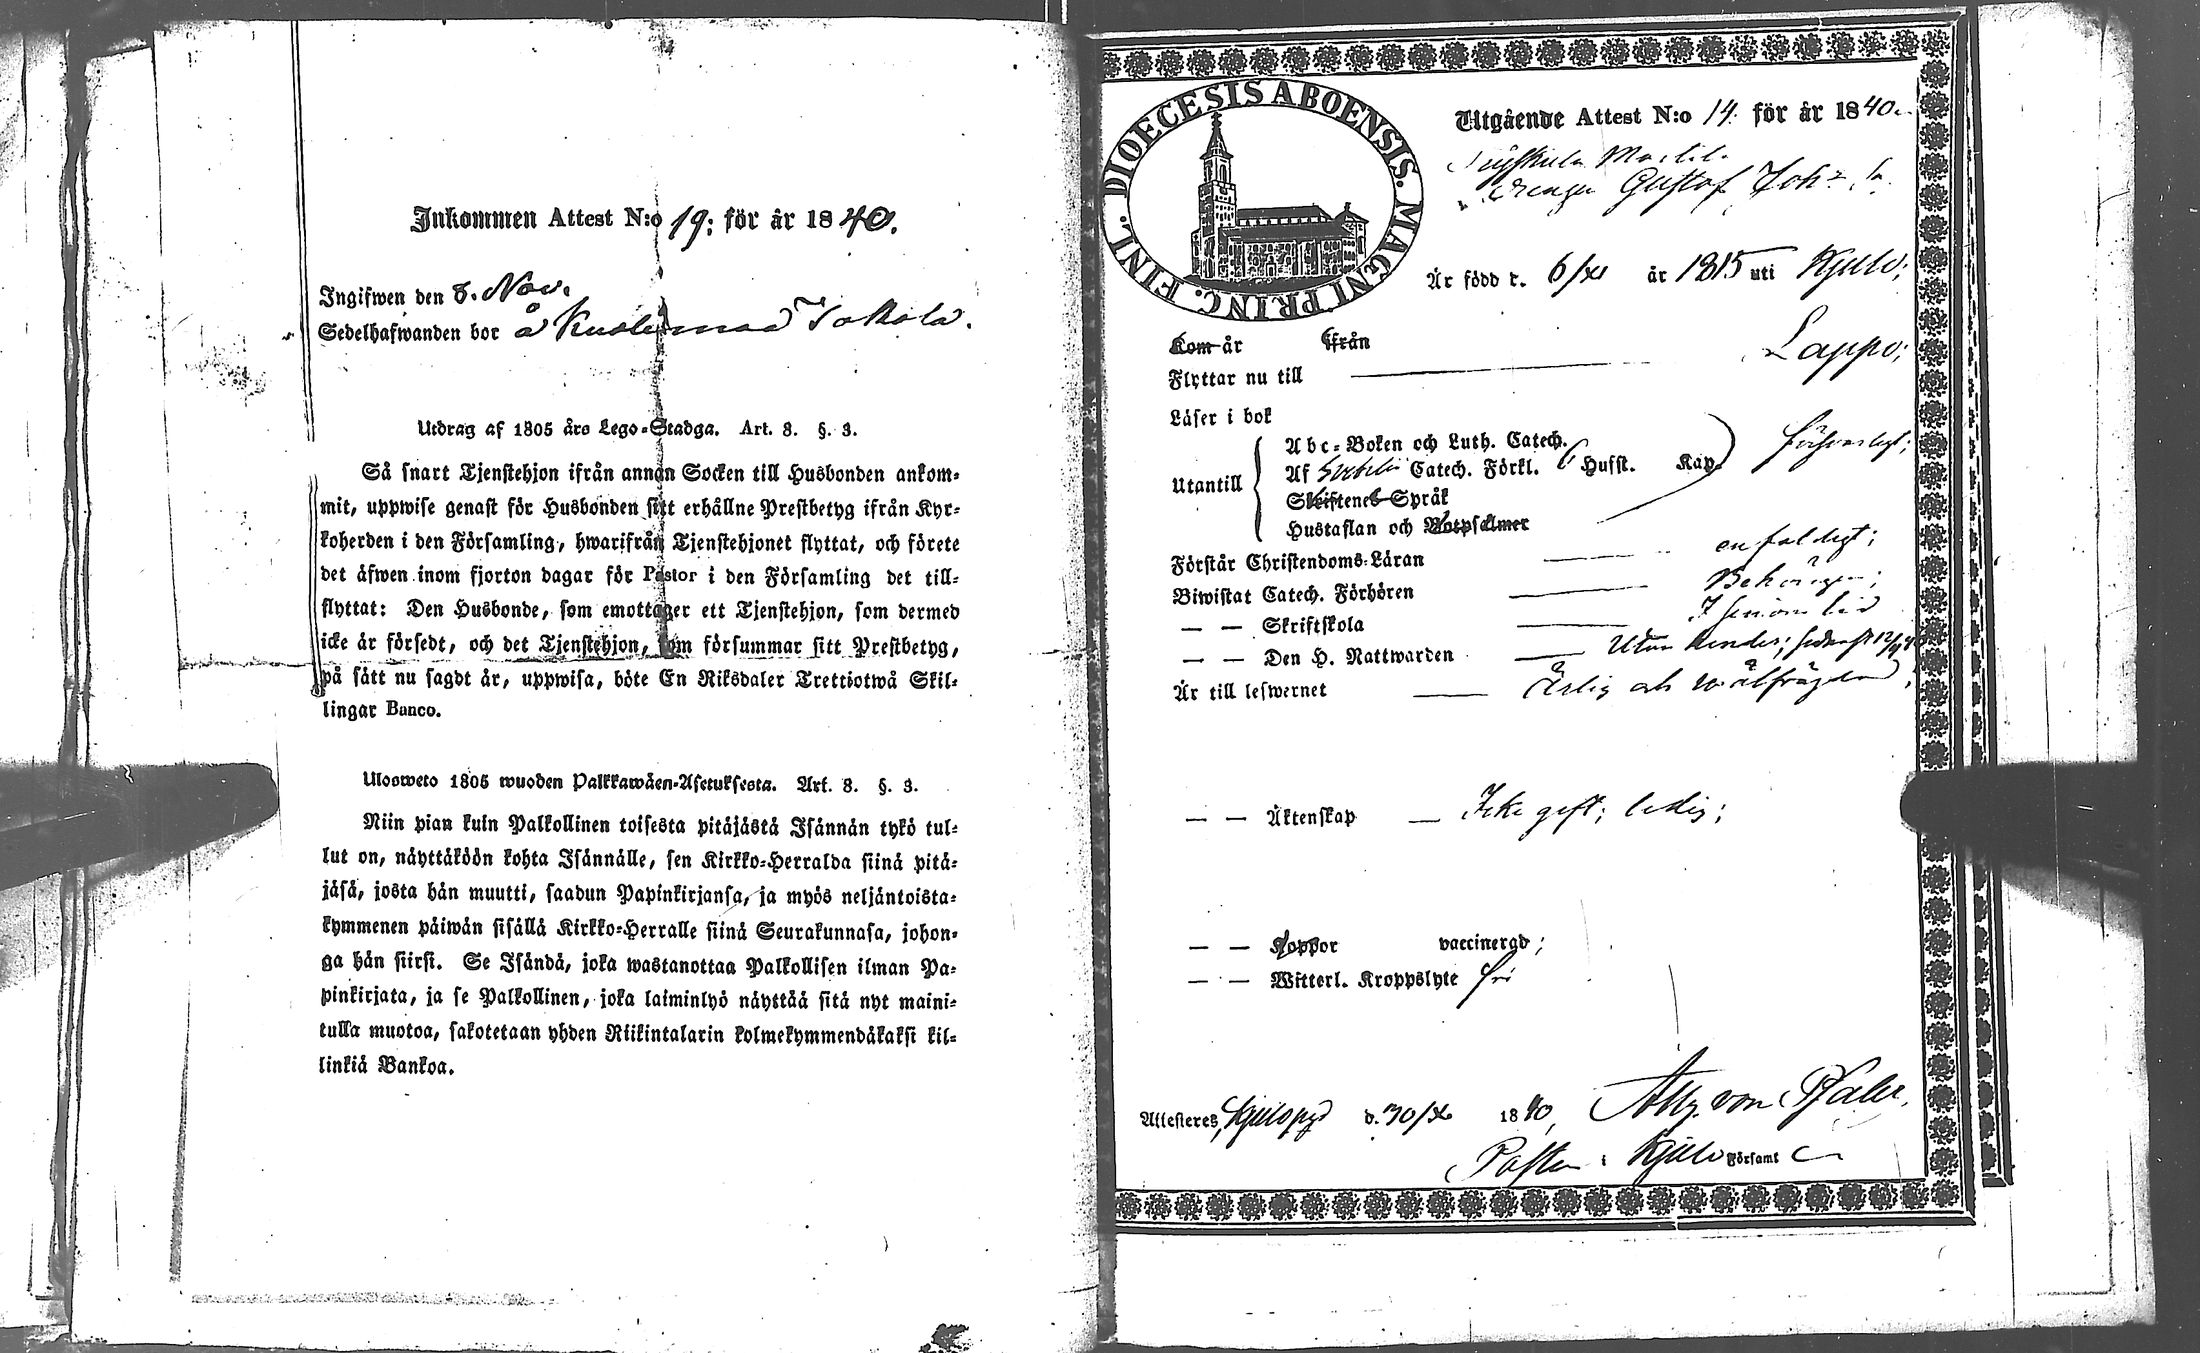 Inkommen Attest N:o 19; för år 1840.
Ingifwen den 8. Nov.
Sedelhafwanden bor å Jakola.
Utdrag af 1805 års Lego-Stadga. Art. 8. §. 3.
Så snart Tjenstehjon ifrån annan Socken till Husbonden ankom-
mit, uppwise genast för Husbonden sitt erhållne Prestbetyg ifrån Kyr-
koherden i den Församling, hwarifrån Tjenstehjonet flyttat, och förete
det äfwen inom fjorton dagar för Pastor i den Församling det till-
flyttat: Den Husbonde, som emottager ett Tjenstehjon, som dermed
icke är försedt, och det Tjenstehjon, som försummar sitt Prestbetyg,
på sätt nu sagdt är, uppwisa, böte En Riksdaler Trettiotwå Skil-
lingar Banco.
Ulosweto 1805 wuoden Palkkawäen-Asetuksesta. Art. 8. §. 3.
Niin pian kuin Palkollinen toisesta pitäjästä Isännän tykö tul-
lut on, näyttäköön kohta Isännälle, sen Kirkko-Herralda siinä pitä-
jäsä, josta hän muutti, saadun Papinkirjansa, ja myös neljäntoista-
kymmenen päiwän sisällä Kirkko-Herralle siinä Seurakunnasa, johon-
ga hän siirsi. Se Isändä, joka wastanottaa Palkollisen ilman Pa-
pinkirjata, ja se Palkollinen, joka laiminlyö näyttää sitä nyt maini-
tulla muotoa, sakotetaan yhden Riikintalarin kolmekymmendäkaksi kil-
linkiä Bankoa.
FINL. DIOECESIS ABOENSIS. MAGNI PRINC.
Utgående Attest N:o 14. för år 1840
Drengen Gustof Joh:s
Är född d. 6/XI år 1815 uti Kjulo;
Kom år ifrån
Flyttar nu till Lappo;
Läser i bok
Abc-Boken och Luth. Catech. försvarligt;
Utantill Af Svebelii Catech. Förkl. Hufst. Kap.
Skriftenes Språk
Hustaflan och Botpsalmer
Förstår Christendoms-Läran enfaldigt;
Biwistat Catech. Förhören Behörigen;
— — Skriftskola I sinom tid
— — Den H. Nattwarden Utan hinder; sednast 12/
Är till lefwernet Ärlig och wälfrägdad;
— — Äktenskap — Icke gift; ledig;
— — Koppor vaccinerad;
— — Witterl. Kroppslyte fri
Attesteres, Kjulo d. 30/X 1840, von Pfaler.
Pastor i Kjulo Församl